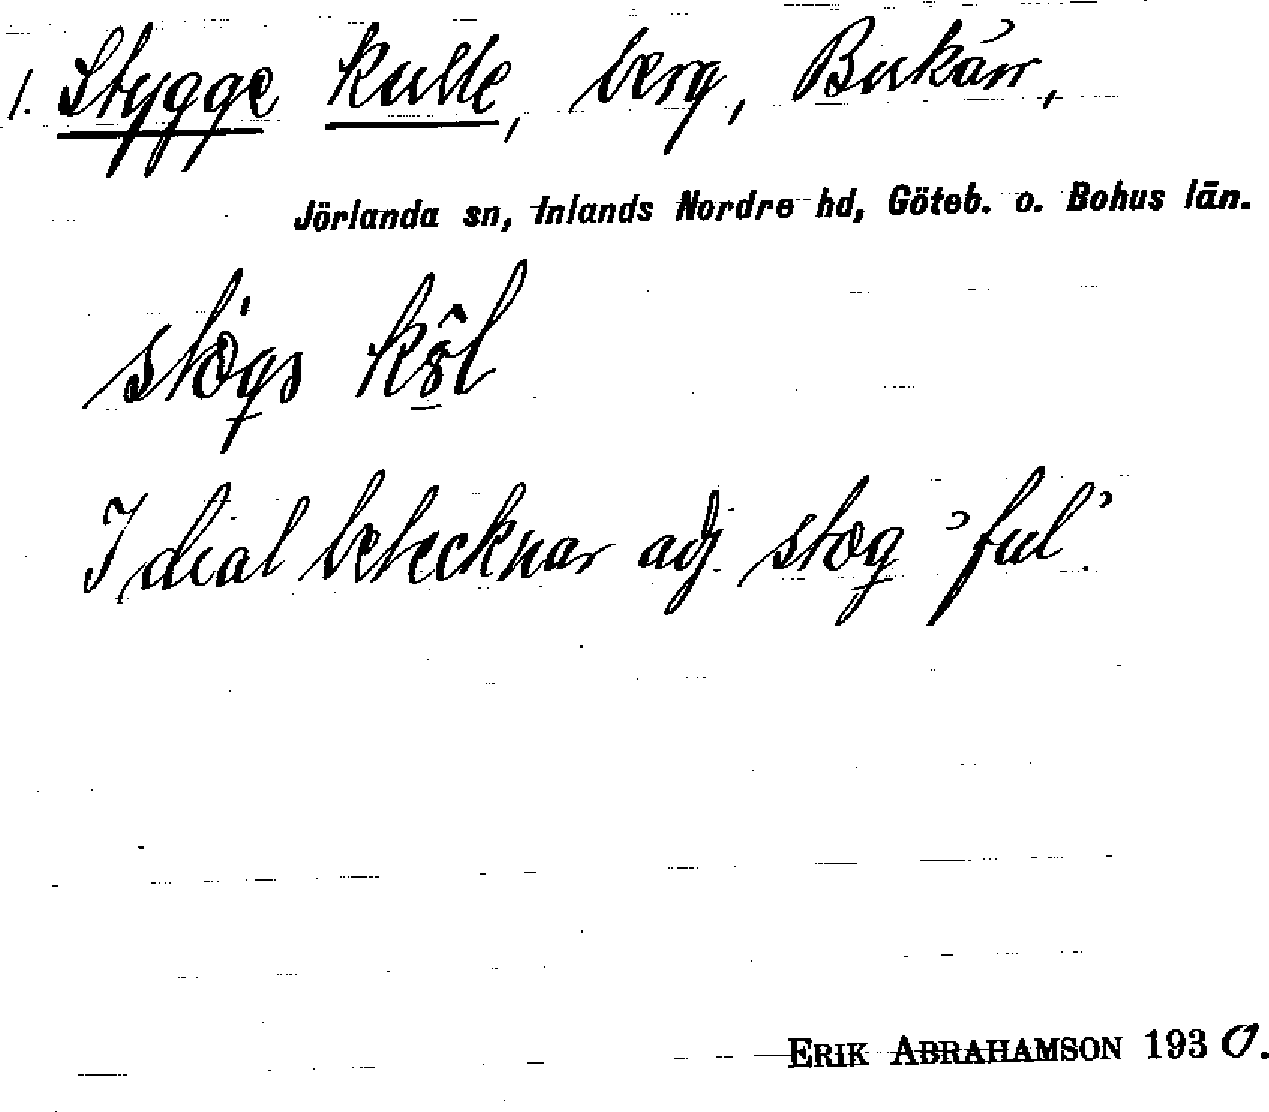 1. Stygge kulle, berg, Bukärr,
Jörlanda sn, Inlands Nordre hd, Göteb. o. Bohus län.
stœ̀gs kôl
I dial betecknar adj. stœg 'ful'.
ERIK ABRAHAMSON 1930.